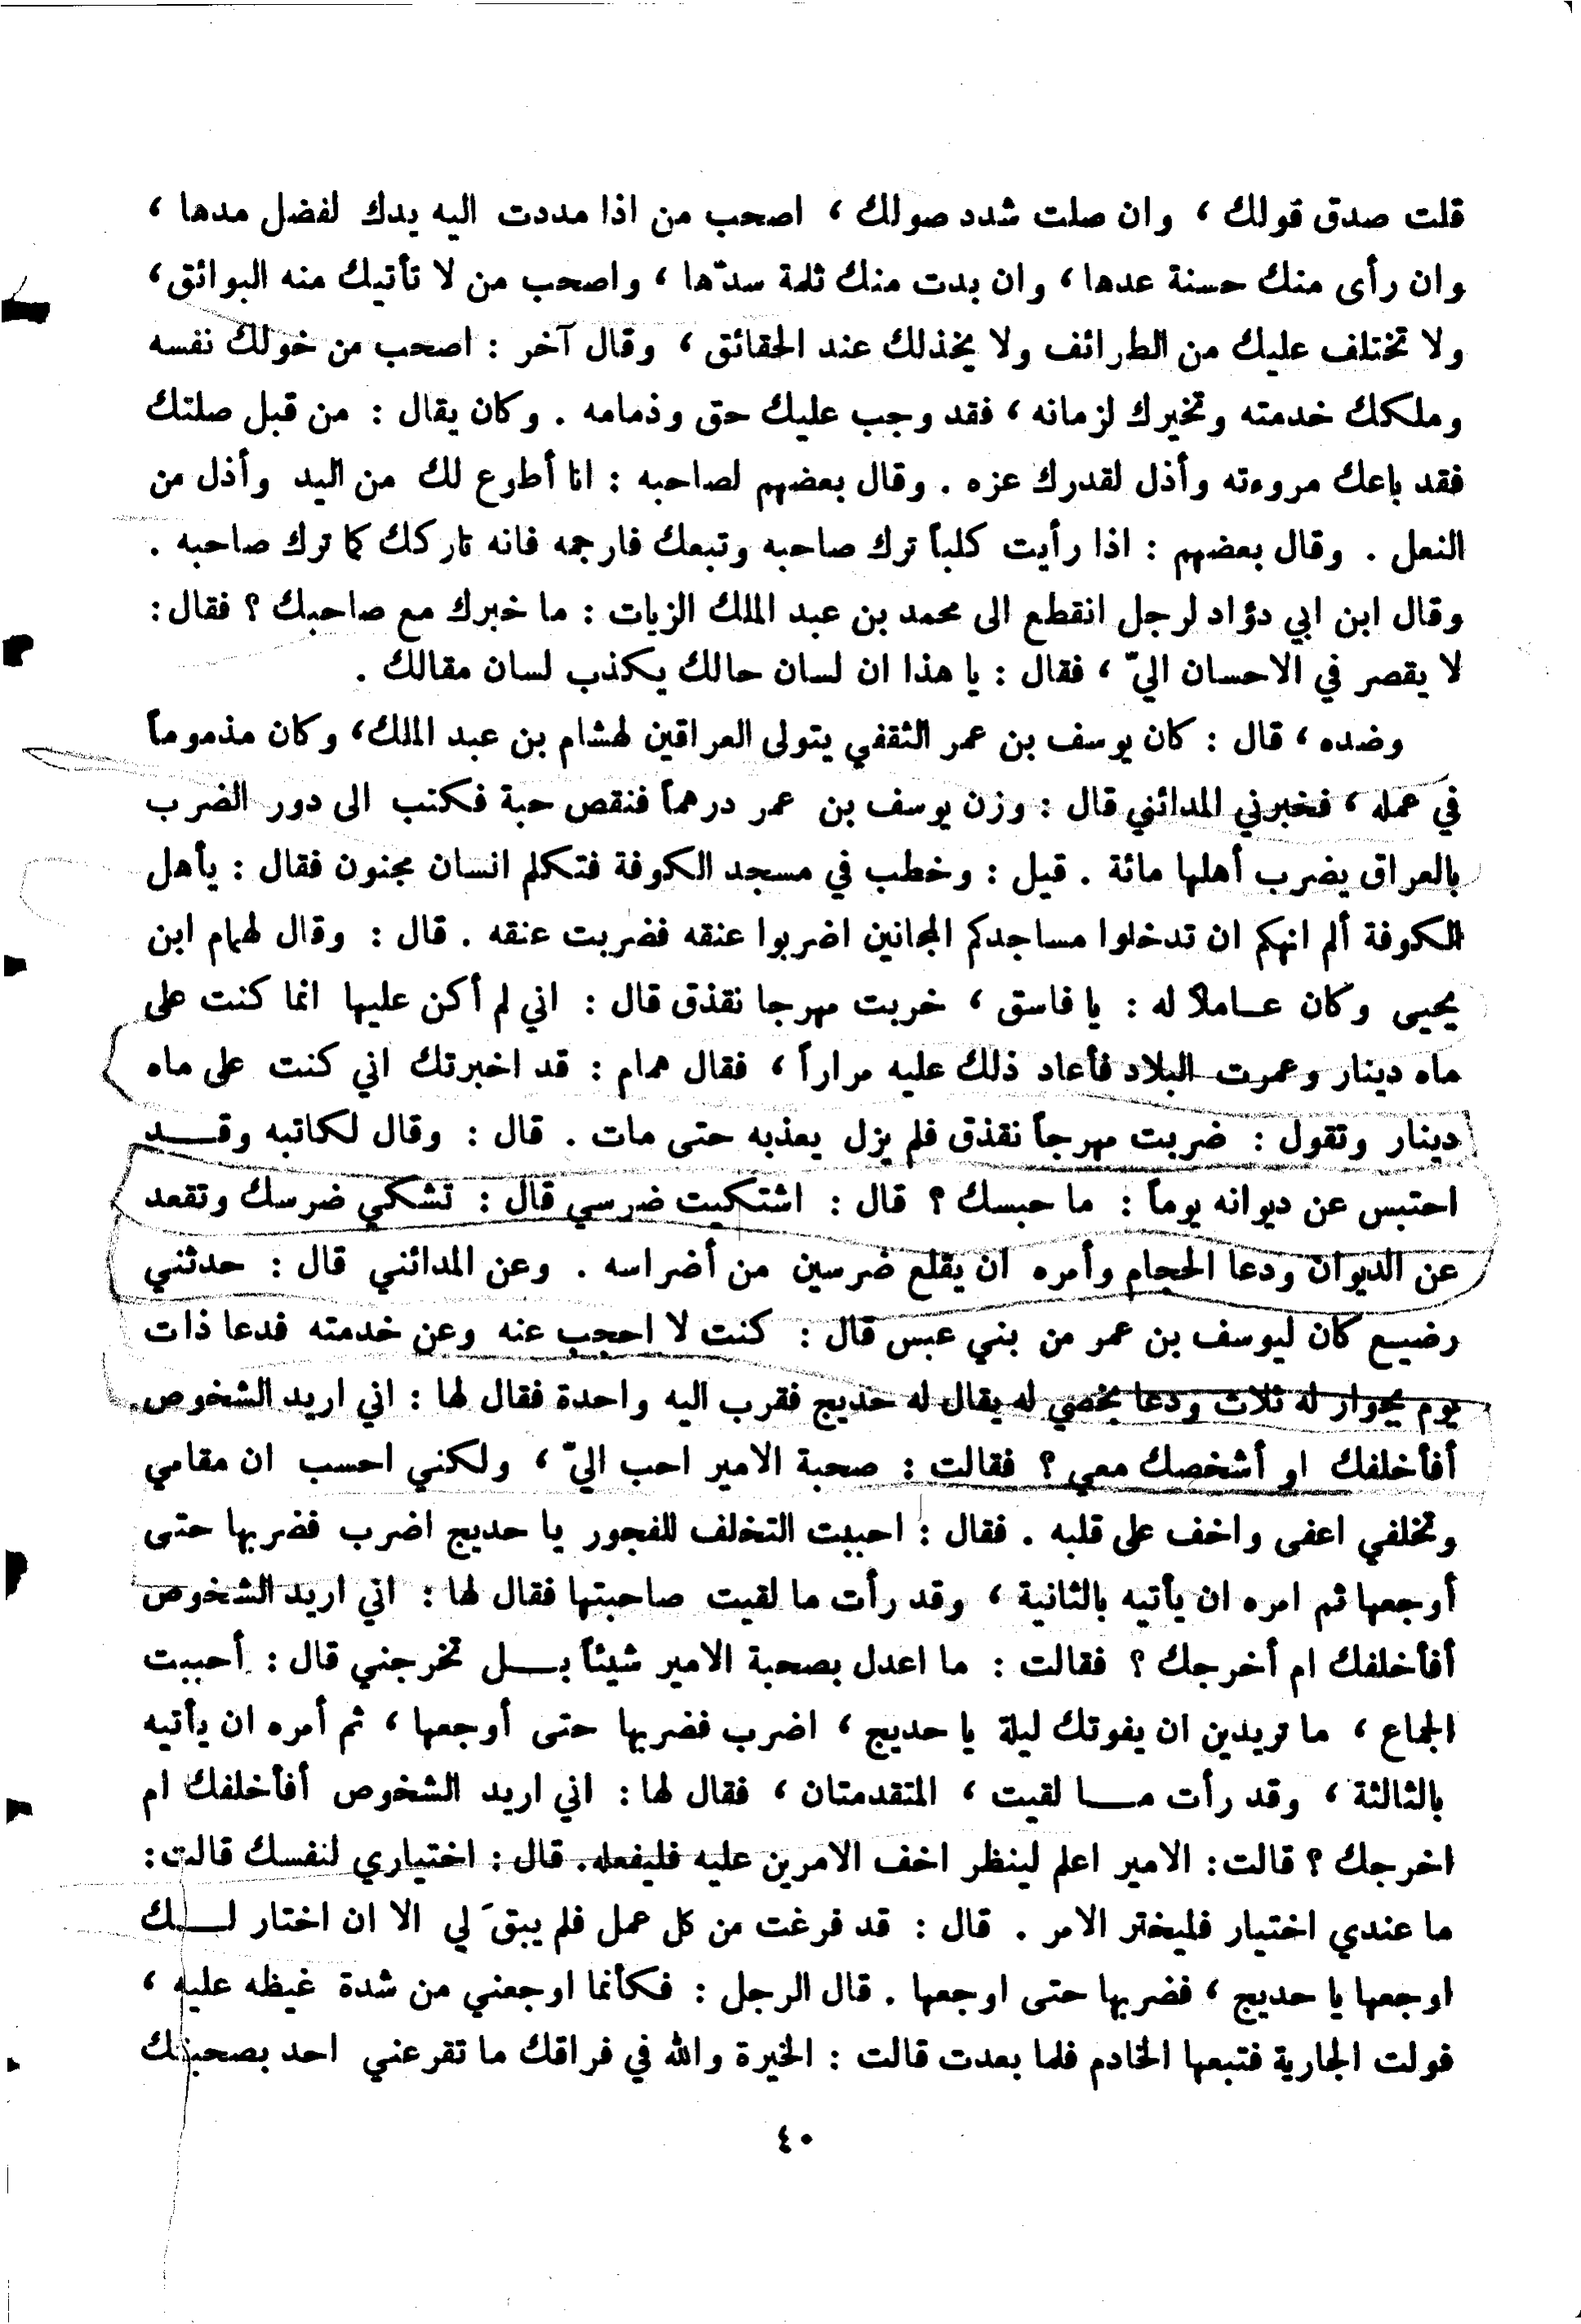 قلت صدق قولك ، وان صلت شدد صولك ، اصحب من اذا مددت اليه يدك لفضل مدها ،
وان رأى منك حسنة عدها ، وان بدت منك ثلمة سدّها ، واصحب من لا تأتيك منه البوائق ،
ولا تختلف عليك من الطرائف ولا يخذلك عند الحقائق ، وقال آخر : اصحب من خولك نفسه
وملكك خدمته وتخيرك لزمانه ، فقد وجب عليك حق وذمامه . وكان يقال : من قبل صلتك
فقد باعك مروءته وأذل لقدرك عزه . وقال بعضهم لصاحبه : انا أطوع لك من اليد وأذل من
النعل . وقال بعضهم : اذا رأيت كلباً ترك صاحبه وتبعك فارجمه فانه تاركك كما ترك صاحبه .
وقال ابن ابي دؤاد لرجل انقطع الى محمد بن عبد الملك الزيات : ما خبرك مع صاحبك ؟ فقال :
لا يقصر في الاحسان اليّ ، فقال : يا هذا ان لسان حالك يكذب لسان مقالك .
وضده ، قال : كان يوسف بن عمر الثقفي يتولى العراقين لهشام بن عبد الملك ، وكان مذموماً
في عمله ، فخبرني المدائني قال : وزن يوسف بن عمر درهماً فنقص حبة فكتب الى دور الضرب
بالعراق يضرب أهلها مائة . قيل : وخطب في مسجد الكوفة فتكلم انسان مجنون فقال : يأهل
الكوفة ألم انهكم ان تدخلوا مساجدكم المجانين اضربوا عنقه فضربت عنقه . قال : وقال لهمام ابن
يحيى وكان عاملاً له : يا فاسق ، خربت مهرجا نقذق قال : اني لم أكن عليها انما كنت على
ماه دينار وعمرت البلاد فأعاد ذلك عليه مراراً ، فقال همام : قد اخبرتك اني كنت على ماه
دينار وتقول : ضربت مهرجاً نقذق فلم يزل يعذبه حتى مات . قال : وقال لكاتبه وقد
احتبس عن ديوانه يوماً : ما حبسك ؟ قال : اشتكيت ضرسي قال : تشكي ضرسك وتقعد
عن الديوان ودعا الحجام وأمره ان يقلع ضرسين من أضراسه . وعن المدائني قال : حدثني
رضيع كان ليوسف بن عمر من بني عبس قال : كنت لا احجب عنه وعن خدمته فدعا ذات
يوم بجوار له ثلاث ودعا بخصي له يقال له حديج فقرب اليه واحدة فقال لها : اني اريد الشخوص
أفأخلفك او أشخصك معي ؟ فقالت : صحبة الامير احب اليّ ، ولكني احسب ان مقامي
وتخلفي اعفى واخف على قلبه . فقال : احببت التخلف للفجور يا حديج اضرب فضربها حتى
أوجعها ثم امره ان يأتيه بالثانية ، وقد رأت ما لقيت صاحبتها فقال لها : اني اريد الشخوص
أفأخلفك ام أخرجك ؟ فقالت : ما اعدل بصحبة الامير شيئاً بل تخرجني قال : أحببت
الجماع ، ما تريدين ان يفوتك ليلة يا حديج ، اضرب فضربها حتى أوجعها ، ثم أمره ان يأتيه
بالثالثة ، وقد رأت ما لقيت ، المتقدمتان ، فقال لها : اني اريد الشخوص أفأخلفك ام
اخرجك ؟ قالت : الامير اعلم لينظر اخف الامرين عليه فليفعله . قال : اختياري لنفسك قالت :
ما عندي اختيار فليختر الامر . قال : قد فرغت من كل عمل فلم يبقَ لي الا ان اختار لك
اوجعها يا حديج ، فضربها حتى اوجعها . قال الرجل : فكأنما اوجعني من شدة غيظه عليه ،
فولت الجارية فتبعها الخادم فلما بعدت قالت : الخيرة والله في فراقك ما تقرعني احد بصحبتك
٤٠